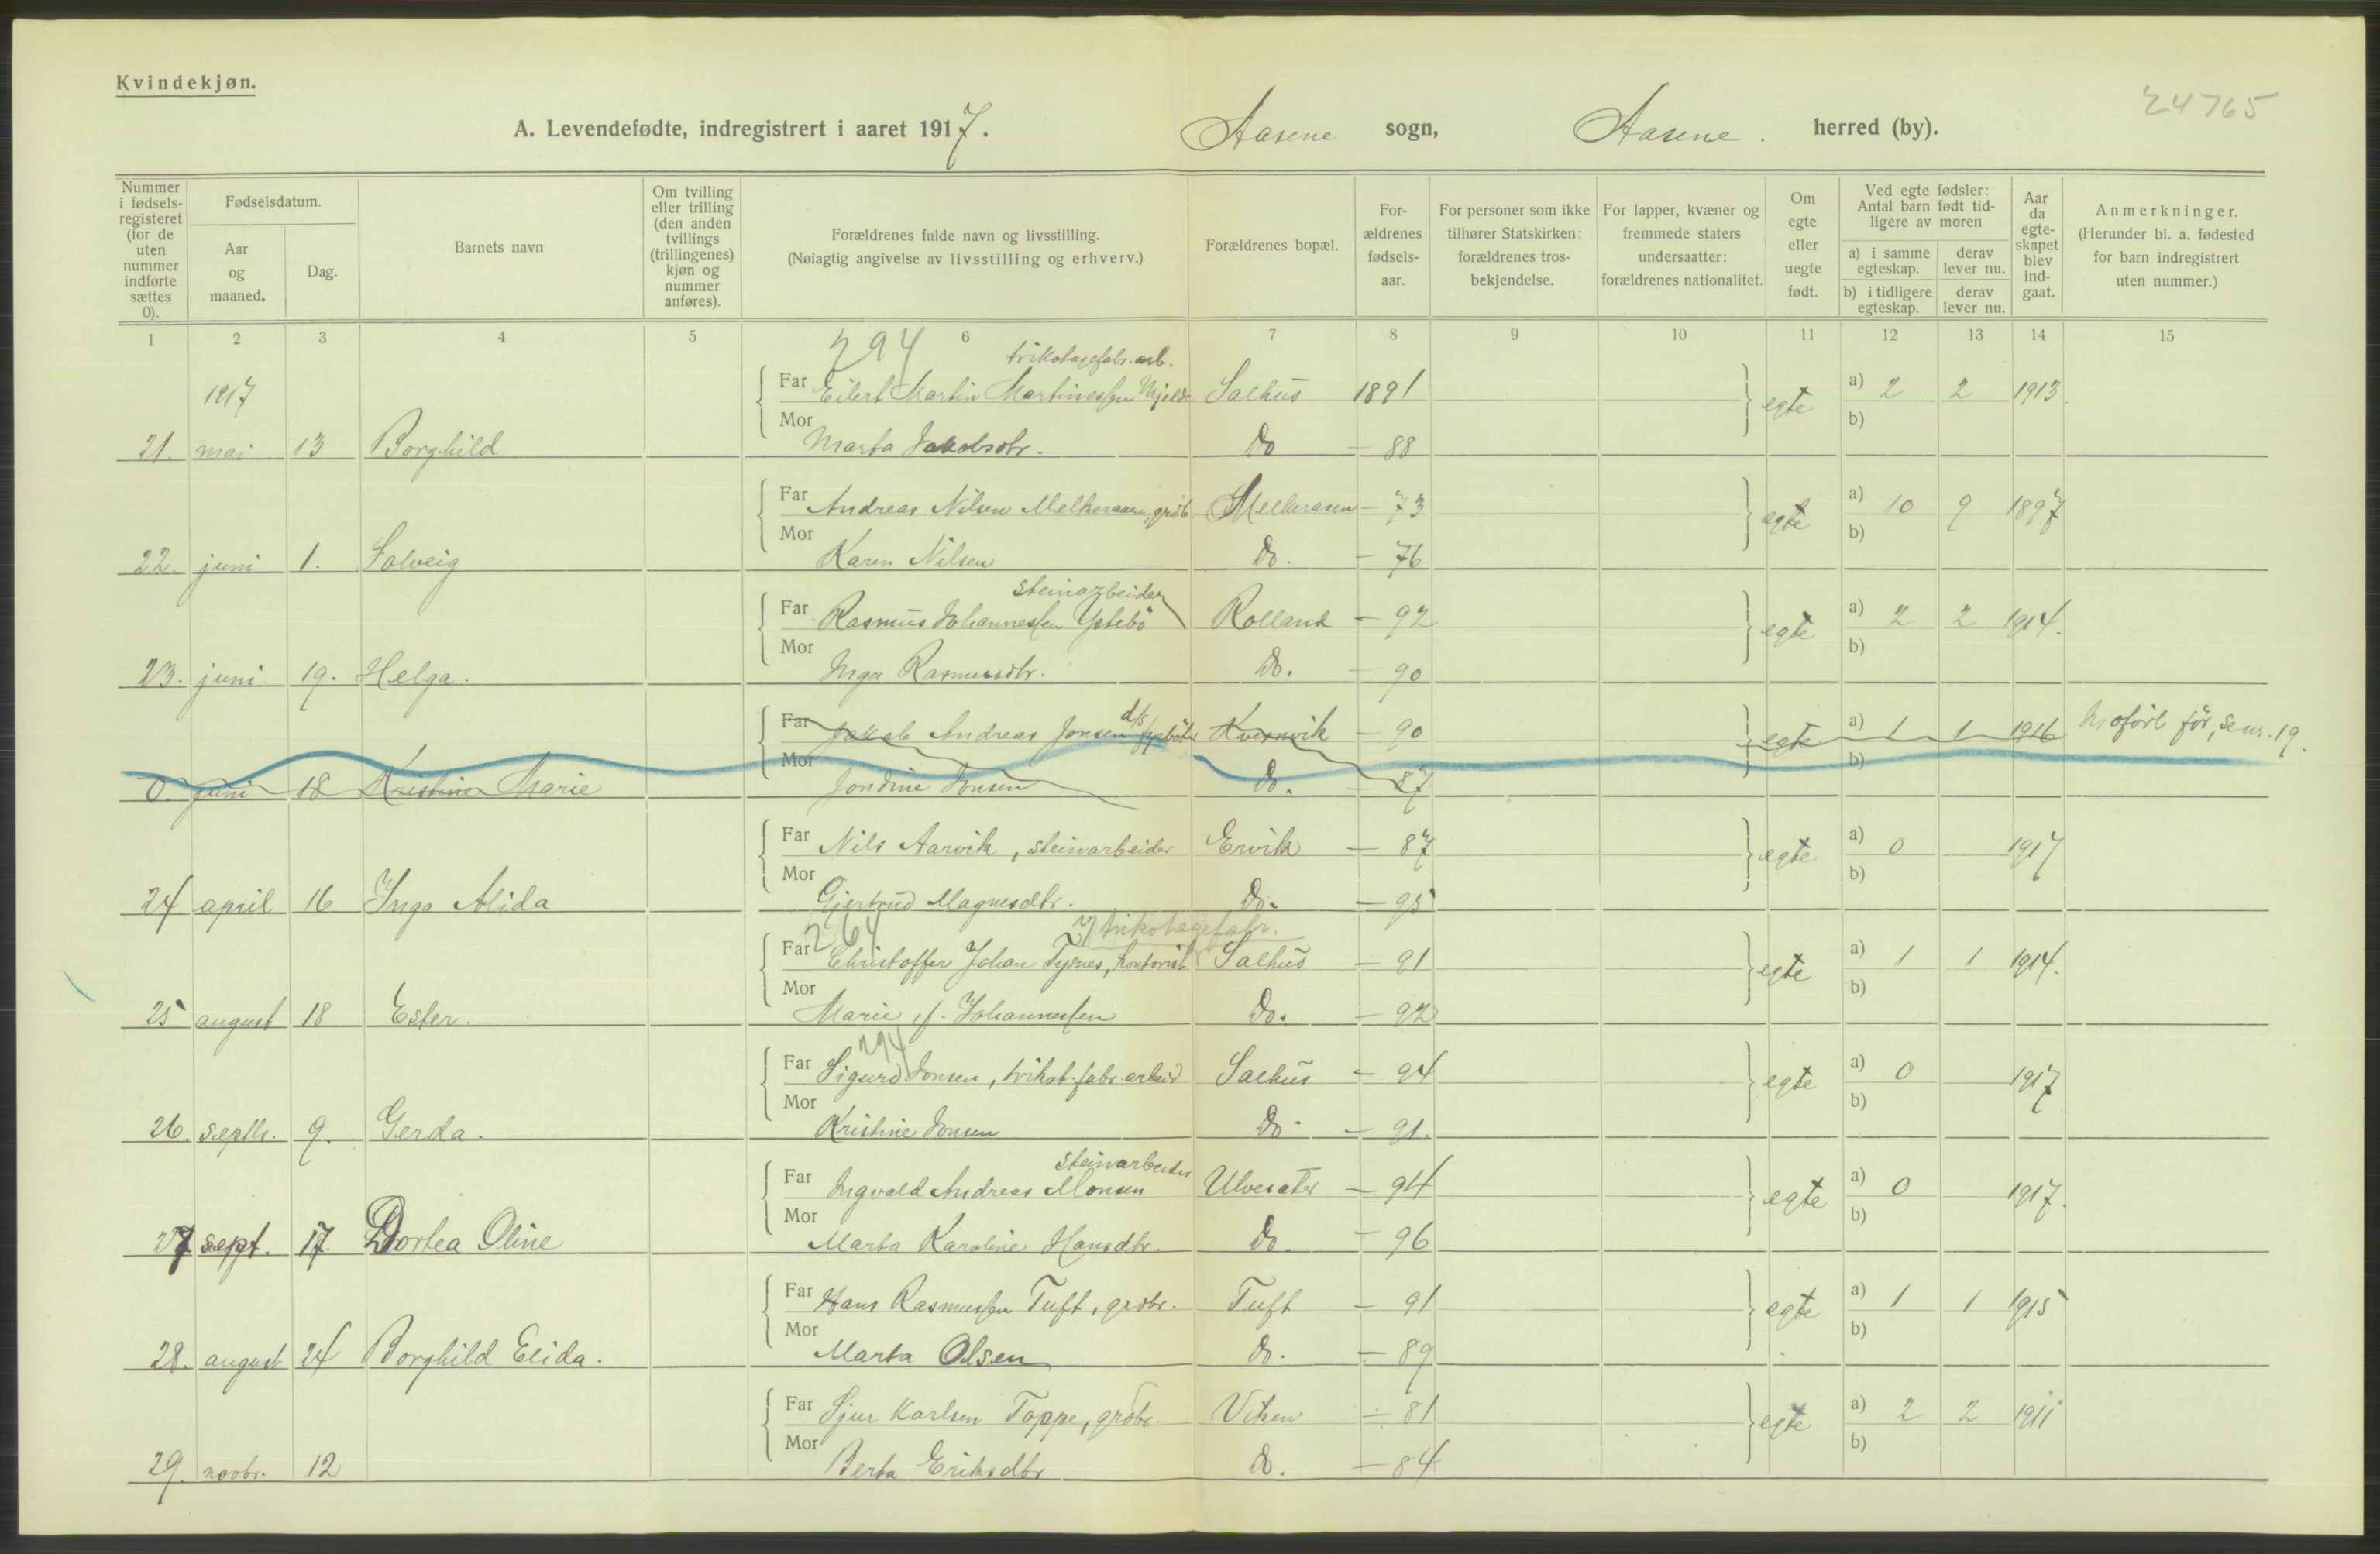 Kvindekjøn.
24765
A. Levendefødte, indregistrert i aaret 1917. Aasene sogn, Aasene. herred (by).
Nummer i fødsels-registeret (for de uten nummer indførte sættes 0).
Fødselsdatum.
Aar og maaned.
Dag.
Barnets navn
Om tvilling eller trilling (den anden tvillings (trillingenes) kjøn og nummer anføres).
Forældrenes fulde navn og livsstilling.
(Nøiagtig angivelse av livsstilling og erhverv.)
Forældrenes bopæl.
For-ældrenes fødsels-aar.
For personer som ikke tilhører Statskirken: forældrenes tros-bekjendelse.
For lapper, kvæner og fremmede staters undersaatter: forældrenes nationalitet.
Om egte eller uegte født.
Ved egte fødsler: Antal barn født tid-ligere av moren
a) i samme egteskap.
derav lever nu.
b) i tidligere egteskap.
derav lever nu.
Aar da egte-skapet blev ind-gaat.
Anmerkninger.
(Herunder bl. a. fødested for barn indregistrert uten nummer.)
1 2 3 4 5 6 7 8 9 10 11 12 13 14 15
294 trikotagefabr. arb.
1917 Far Eilert Martin Martinessen Mjelde Salhus 1891 egte a) 2 2 1913
b)
21. mai 13 Borghild Mor Marta Jakobsdtr. Do — 88
Far Andreas Nilsen Melkeraaen, grdb. Melkeraaen — 73 egte a) 10 9 1897
b)
22. juni 1. Solveig Mor Karen Nilsen Do. — 76
steinarbeider
Far Rasmus Johannessen Ystebö Rolland — 92 egte a) 2 2 1914.
b)
23. juni 19. Helga. Mor Inga Rasmusdtr. Do. — 90
Far Jakob Andreas Jonsen Kvernvik — 90 egte a) 1 1 1916 før, se nr. 19.
b)
0. juni 18 Kristine Marie Mor Jondine Jonsen Do. — 87
Far Nils Aarvik, steinarbeider Ervik — 87 egte a) 0 1917
b)
24 april 16 Inga Alida Mor Gjertrud Magnesdtr. Do. — 95
264 trikotagefabr.
Far Christoffer Johan Tysnes, kontorist Salhus — 91 egte a) 1 1 1914.
b)
25 august 18 Ester. Mor Marie, f. Johannessen Do. — 92
294
Far Sigurd Jonsen, trikot.fabr.arbeid Salhus — 94 egte a) 0 1917
b)
26. septbr. 9. Gerda. Mor Kristine Jonsen Do. — 91.
steinarbeider
Far Ingvald Andreas Monsen Ulvesæter — 94 egte a) 0 1917.
b)
27 sept. 17. Dortea Oline Mor Marta Karoline Hansdtr. Do. — 96
Far Hans Rasmussen Tuft, grdbr. Tuft — 91 egte a) 1 1 1915
b)
28. august 24 Borghild Elida. Mor Marta Olsen Do. — 89
Far Sjur Karlsen Toppe, grdbr. Viken — 81 egte a) 2 2 1911
b)
29. novbr. 12 Mor Berta Eriksdtr Do. — 84